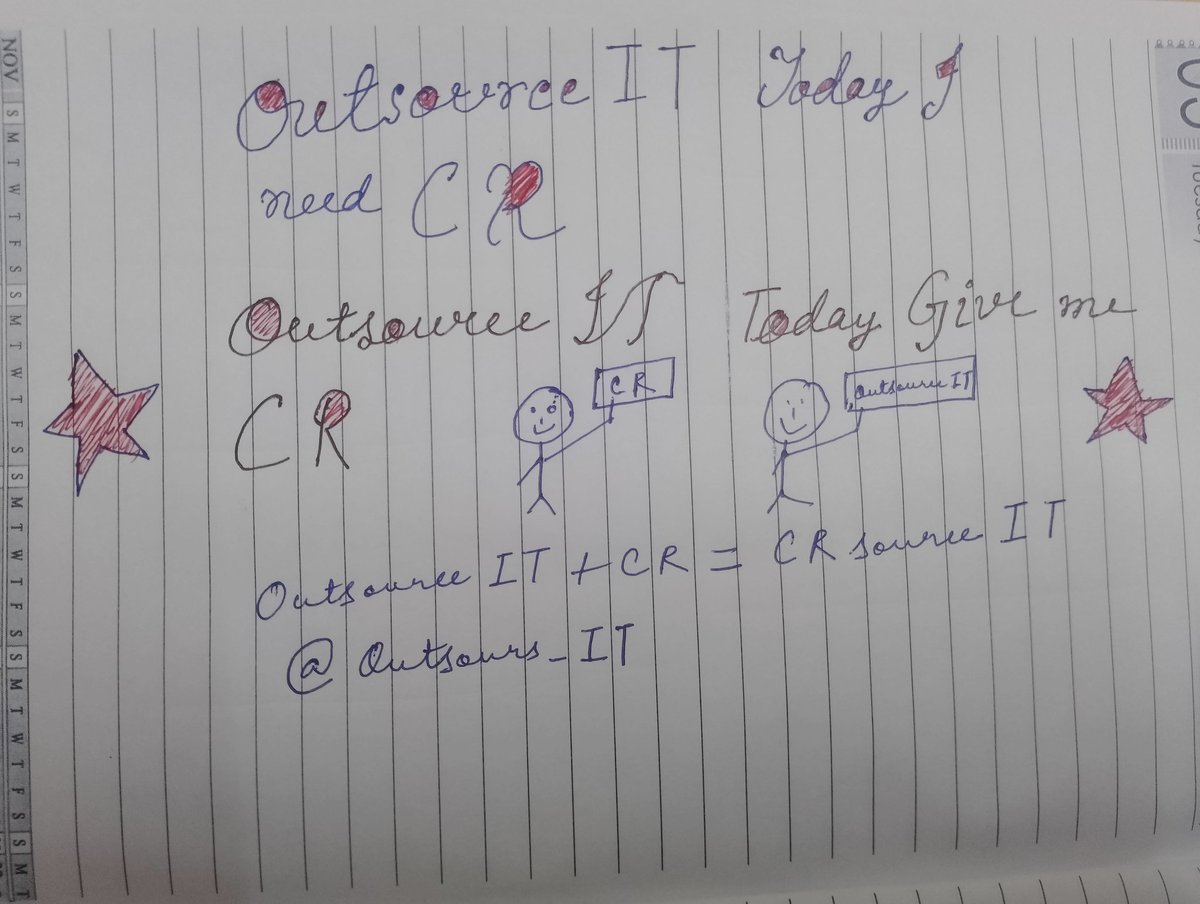 Outsource IT Today I
need CR
Outsource IT Today Give me
CR
CR
Outsource IT
Outsource IT + CR = CR source IT
@ Outsours_IT
NOV S M T W T F S S M T W T F S S M T W T F S S M T W T F S S M T